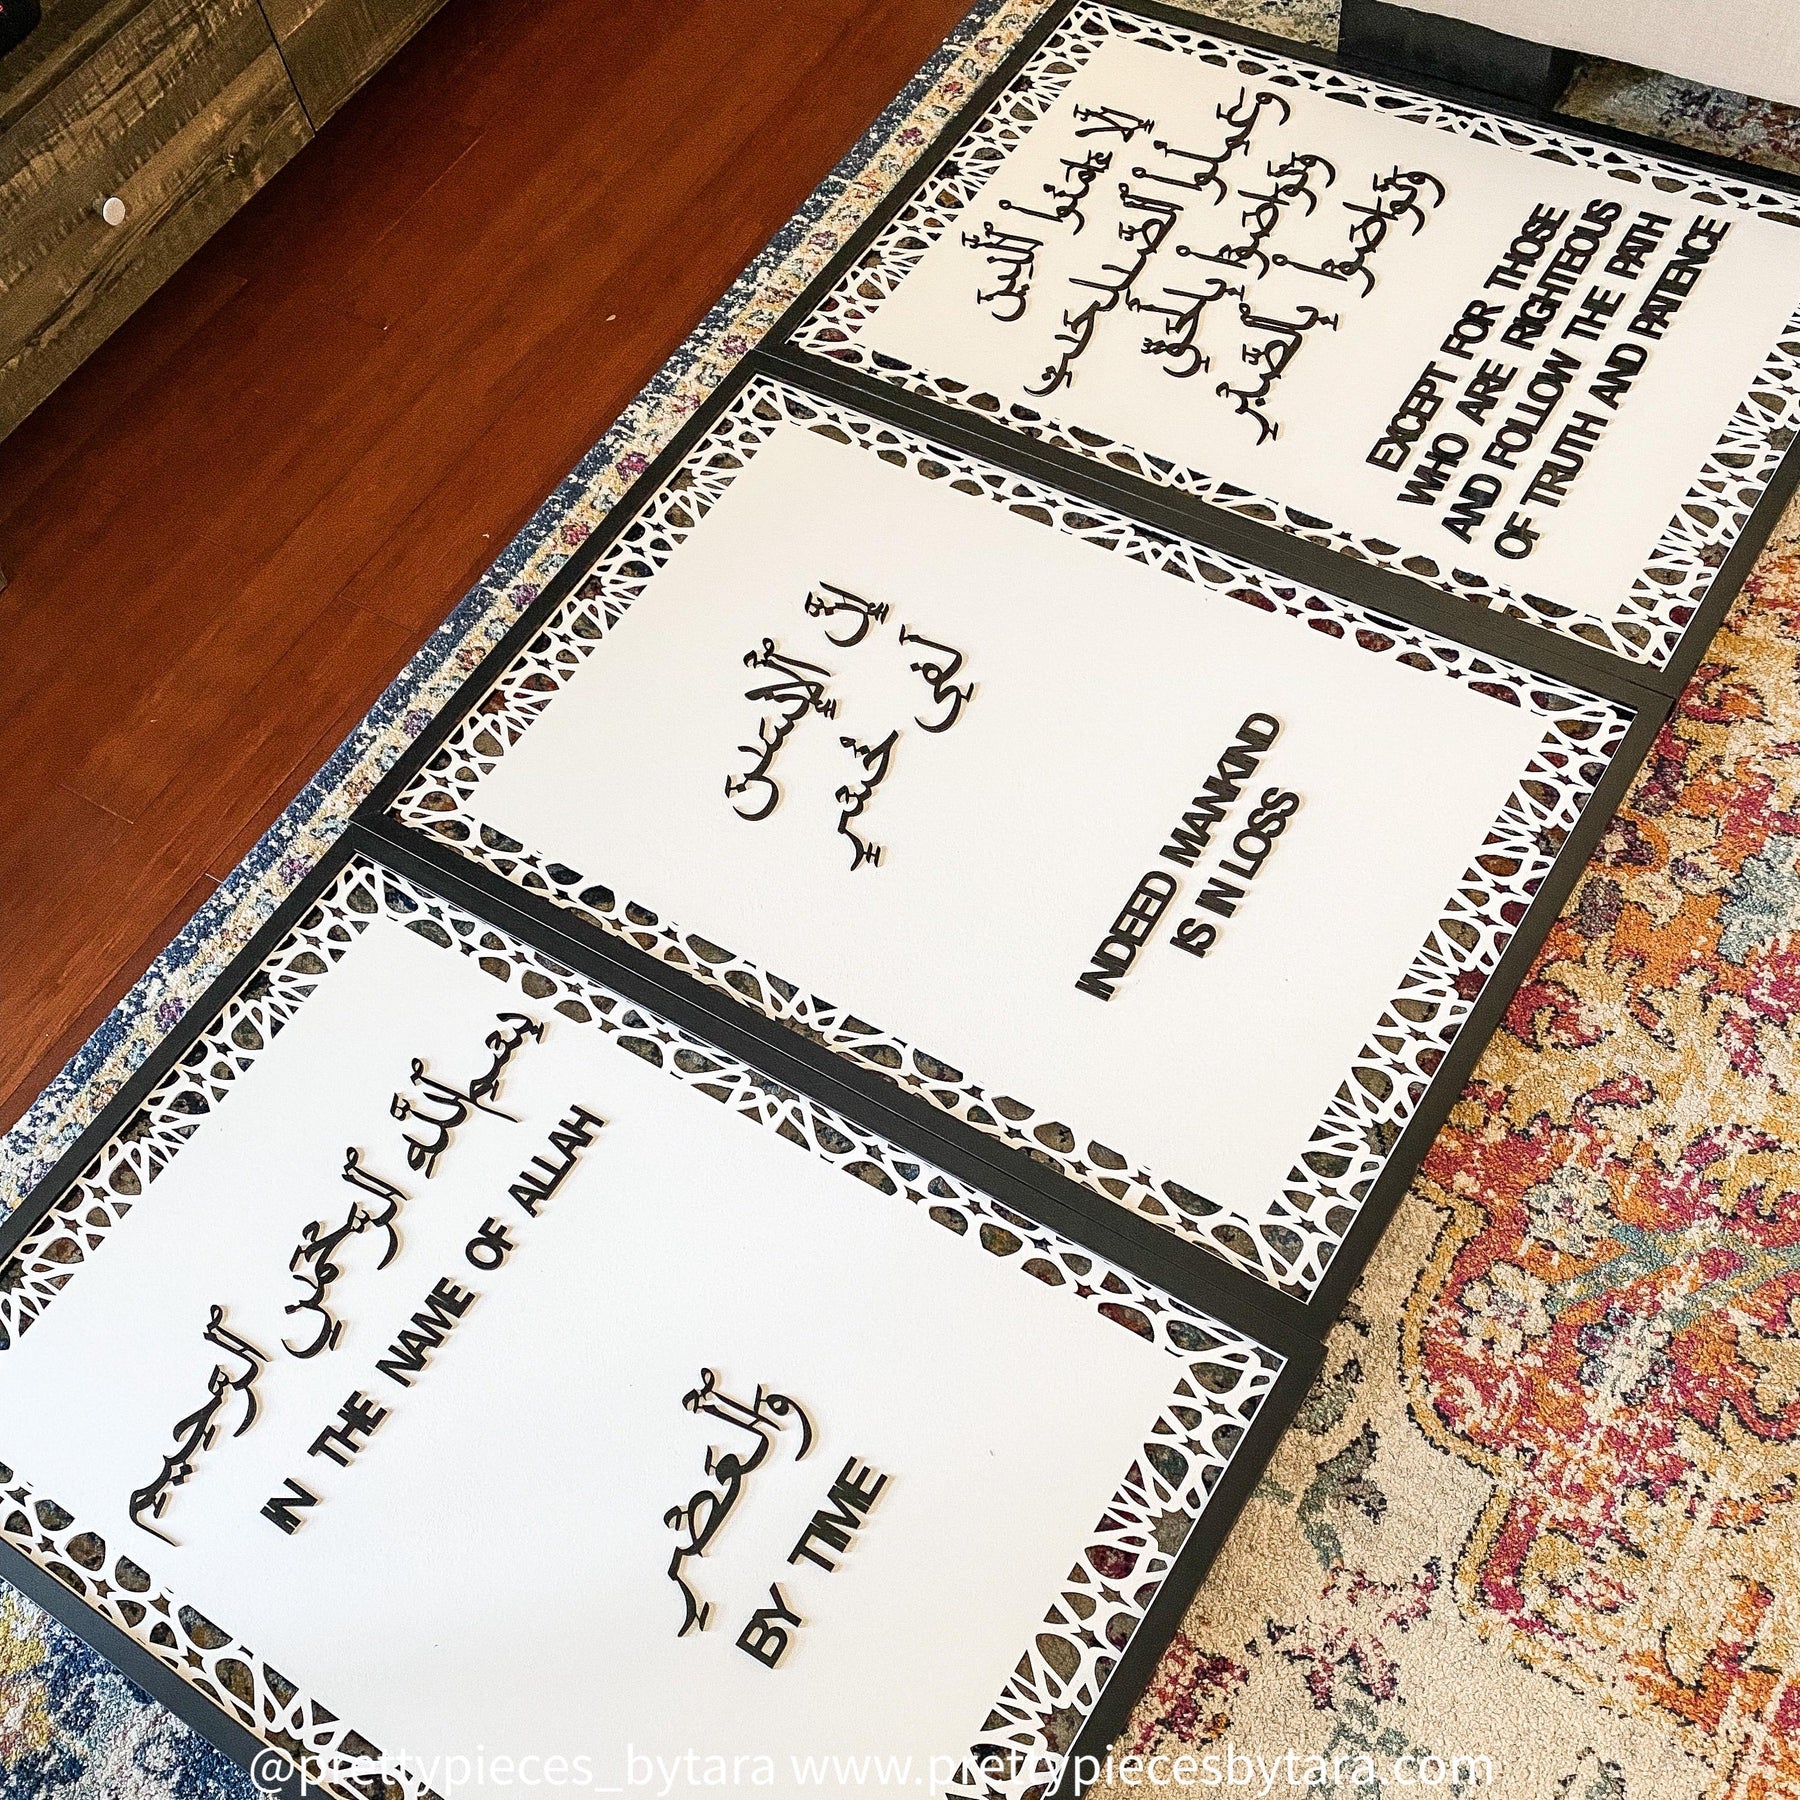 بِسْمِ ٱللَّهِ ٱلرَّحْمَٰنِ ٱلرَّحِيمِ
IN THE NAME OF ALLAH
وَٱلْعَصْرِ
BY TIME
إِنَّ ٱلْإِنسَٰنَ
لَفِى خُسْرٍ
INDEED MANKIND
IS IN LOSS
إِلَّا ٱلَّذِينَ ءَامَنُوا۟
وَعَمِلُوا۟ ٱلصَّٰلِحَٰتِ
وَتَوَاصَوْا۟ بِٱلْحَقِّ
وَتَوَاصَوْا۟ بِٱلصَّبْرِ
EXCEPT FOR THOSE
WHO ARE RIGHTEOUS
AND FOLLOW THE PATH
OF TRUTH AND PATIENCE
@prettypieces_bytara www.prettypiecesbytara.com